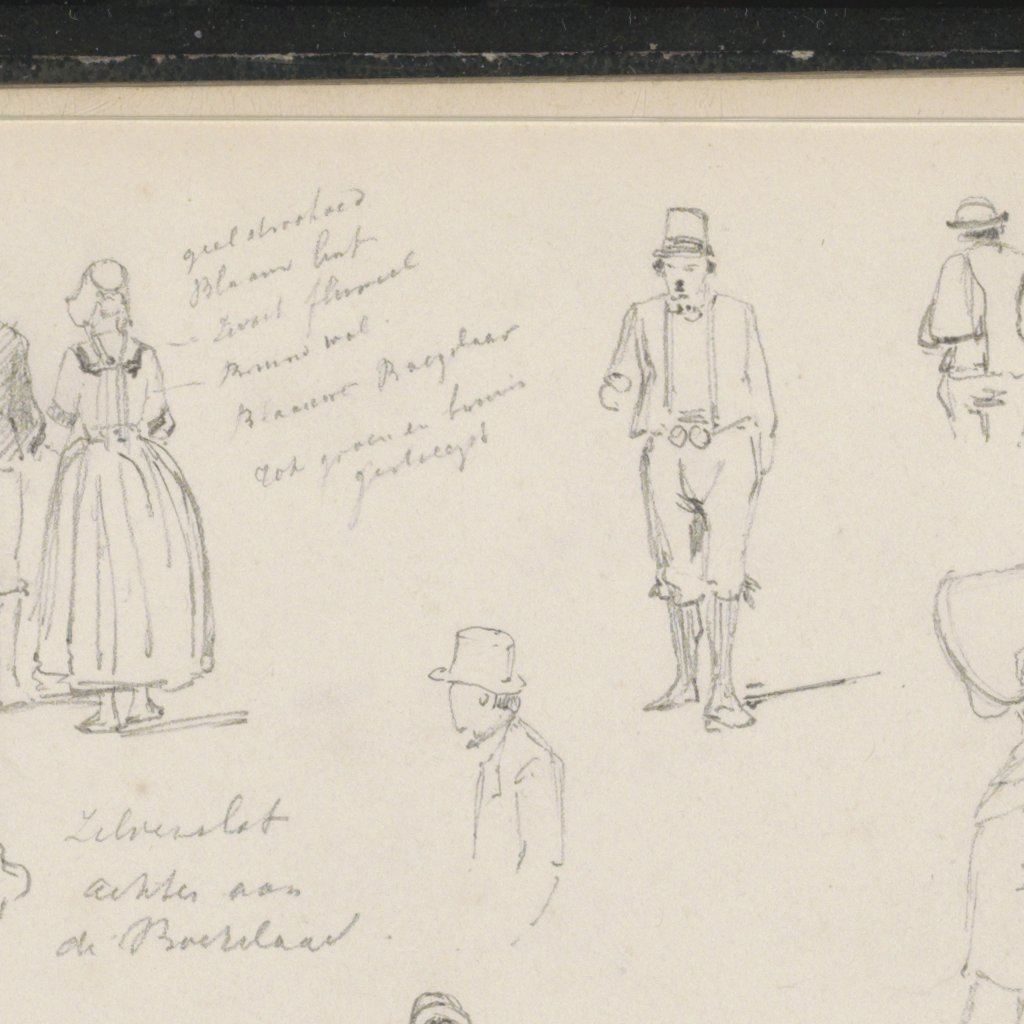 geel stroohoed
Blaauw lint
Zwart fluweel
Bruine wol
Blaauwe
rok groen en bruin
gestreept
Zilverslot
achter aan
de